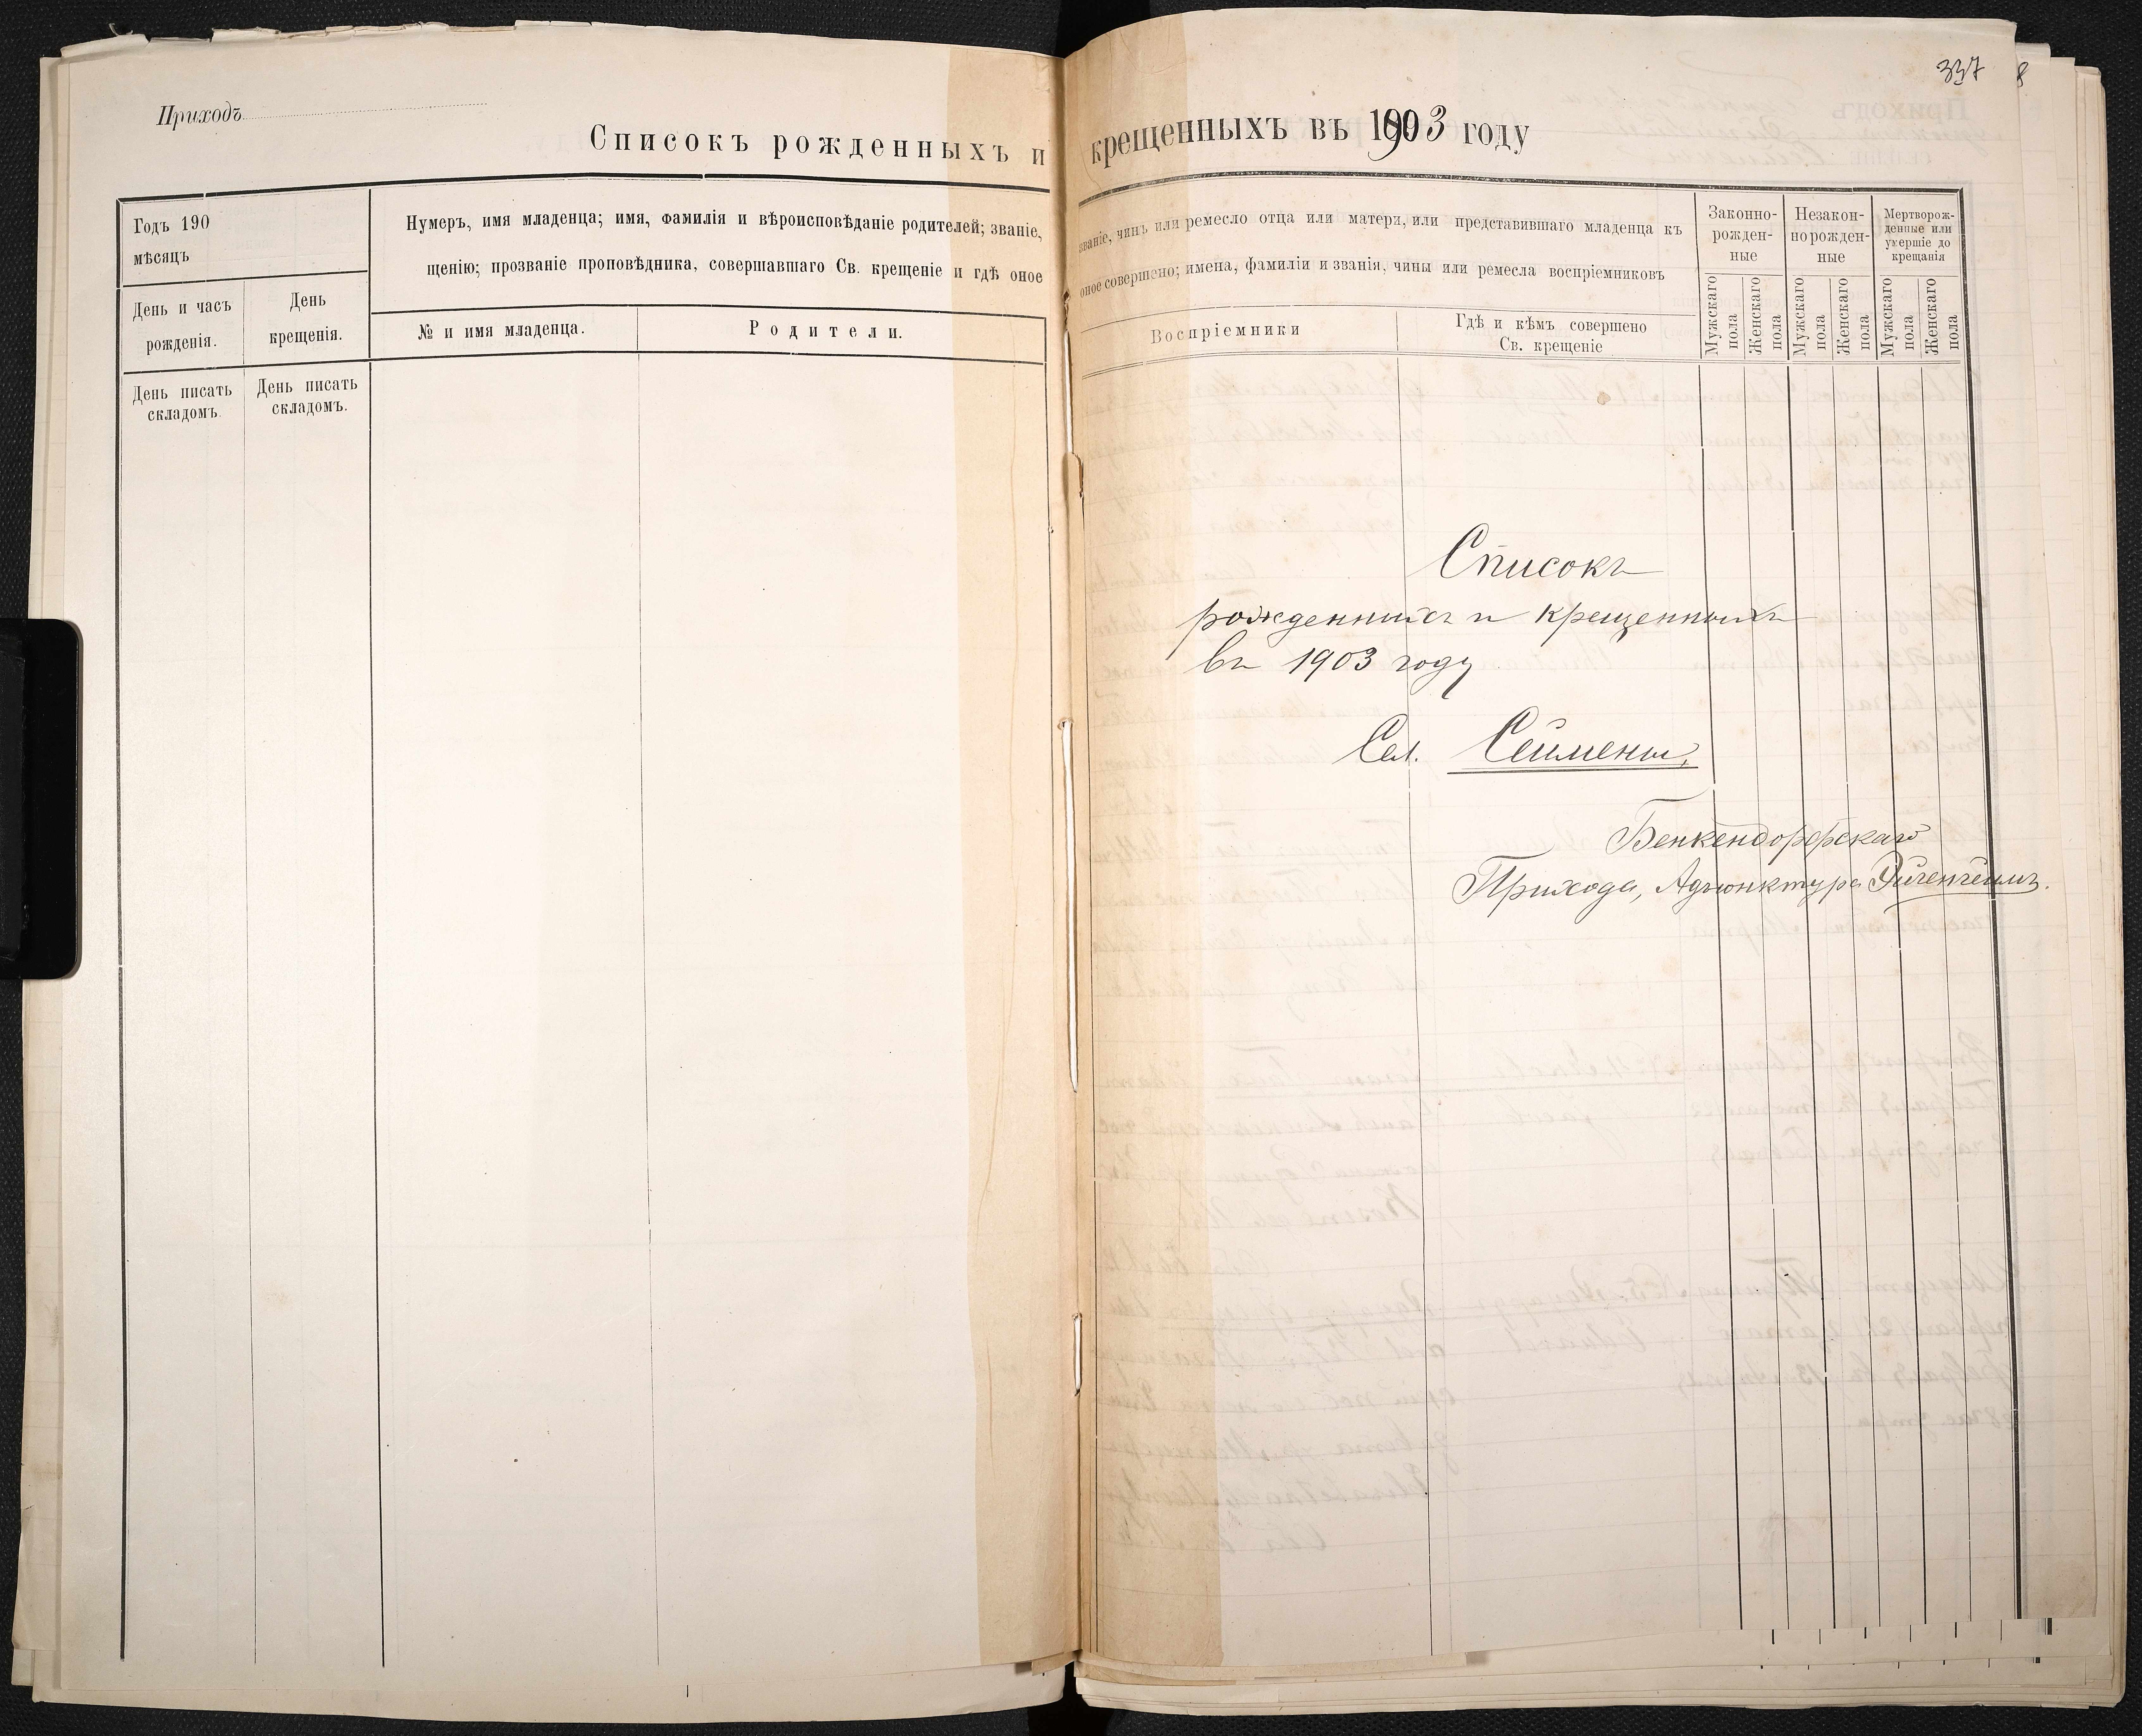 337
Приходъ
Списокъ рожденныхъ и крещенныхъ въ 1903 году
Годъ 190
мѣсяцъ
Нумеръ, имя младенца; имя, фамилія и вѣроисповѣданіе родителей; званіе,
щенію; прозваніе проповѣдника, совершавшаго Св. крещеніе и гдѣ оное
День и часъ
рожденія.
День
крещенія.
№ и имя младенца.
Родители.
День писать
складомъ.
День писать
складомъ.
званіе, чинъ или ремесло отца или матери, или представившаго младенца къ
оное совершено; имена, фамиліи и званія, чины или ремесла воспріемниковъ
Воспріемники
Гдѣ и кѣмъ совершено
Св. крещеніе
Законно-
рожден-
ные
Незакон-
норожден-
ные
Мертворож-
денные или
умершіе до
крещанія
Мужскаго
пола
Женскаго
пола
Мужскаго
пола
Женскаго
пола
Мужскаго
пола
Женскаго
пола
Списокъ
рожденныхъ и крещенныхъ
въ 1903 году
Сел. Сеймены,
Бенкендорфскаго
Прихода, Адъюнктура Эйгенгеймъ.